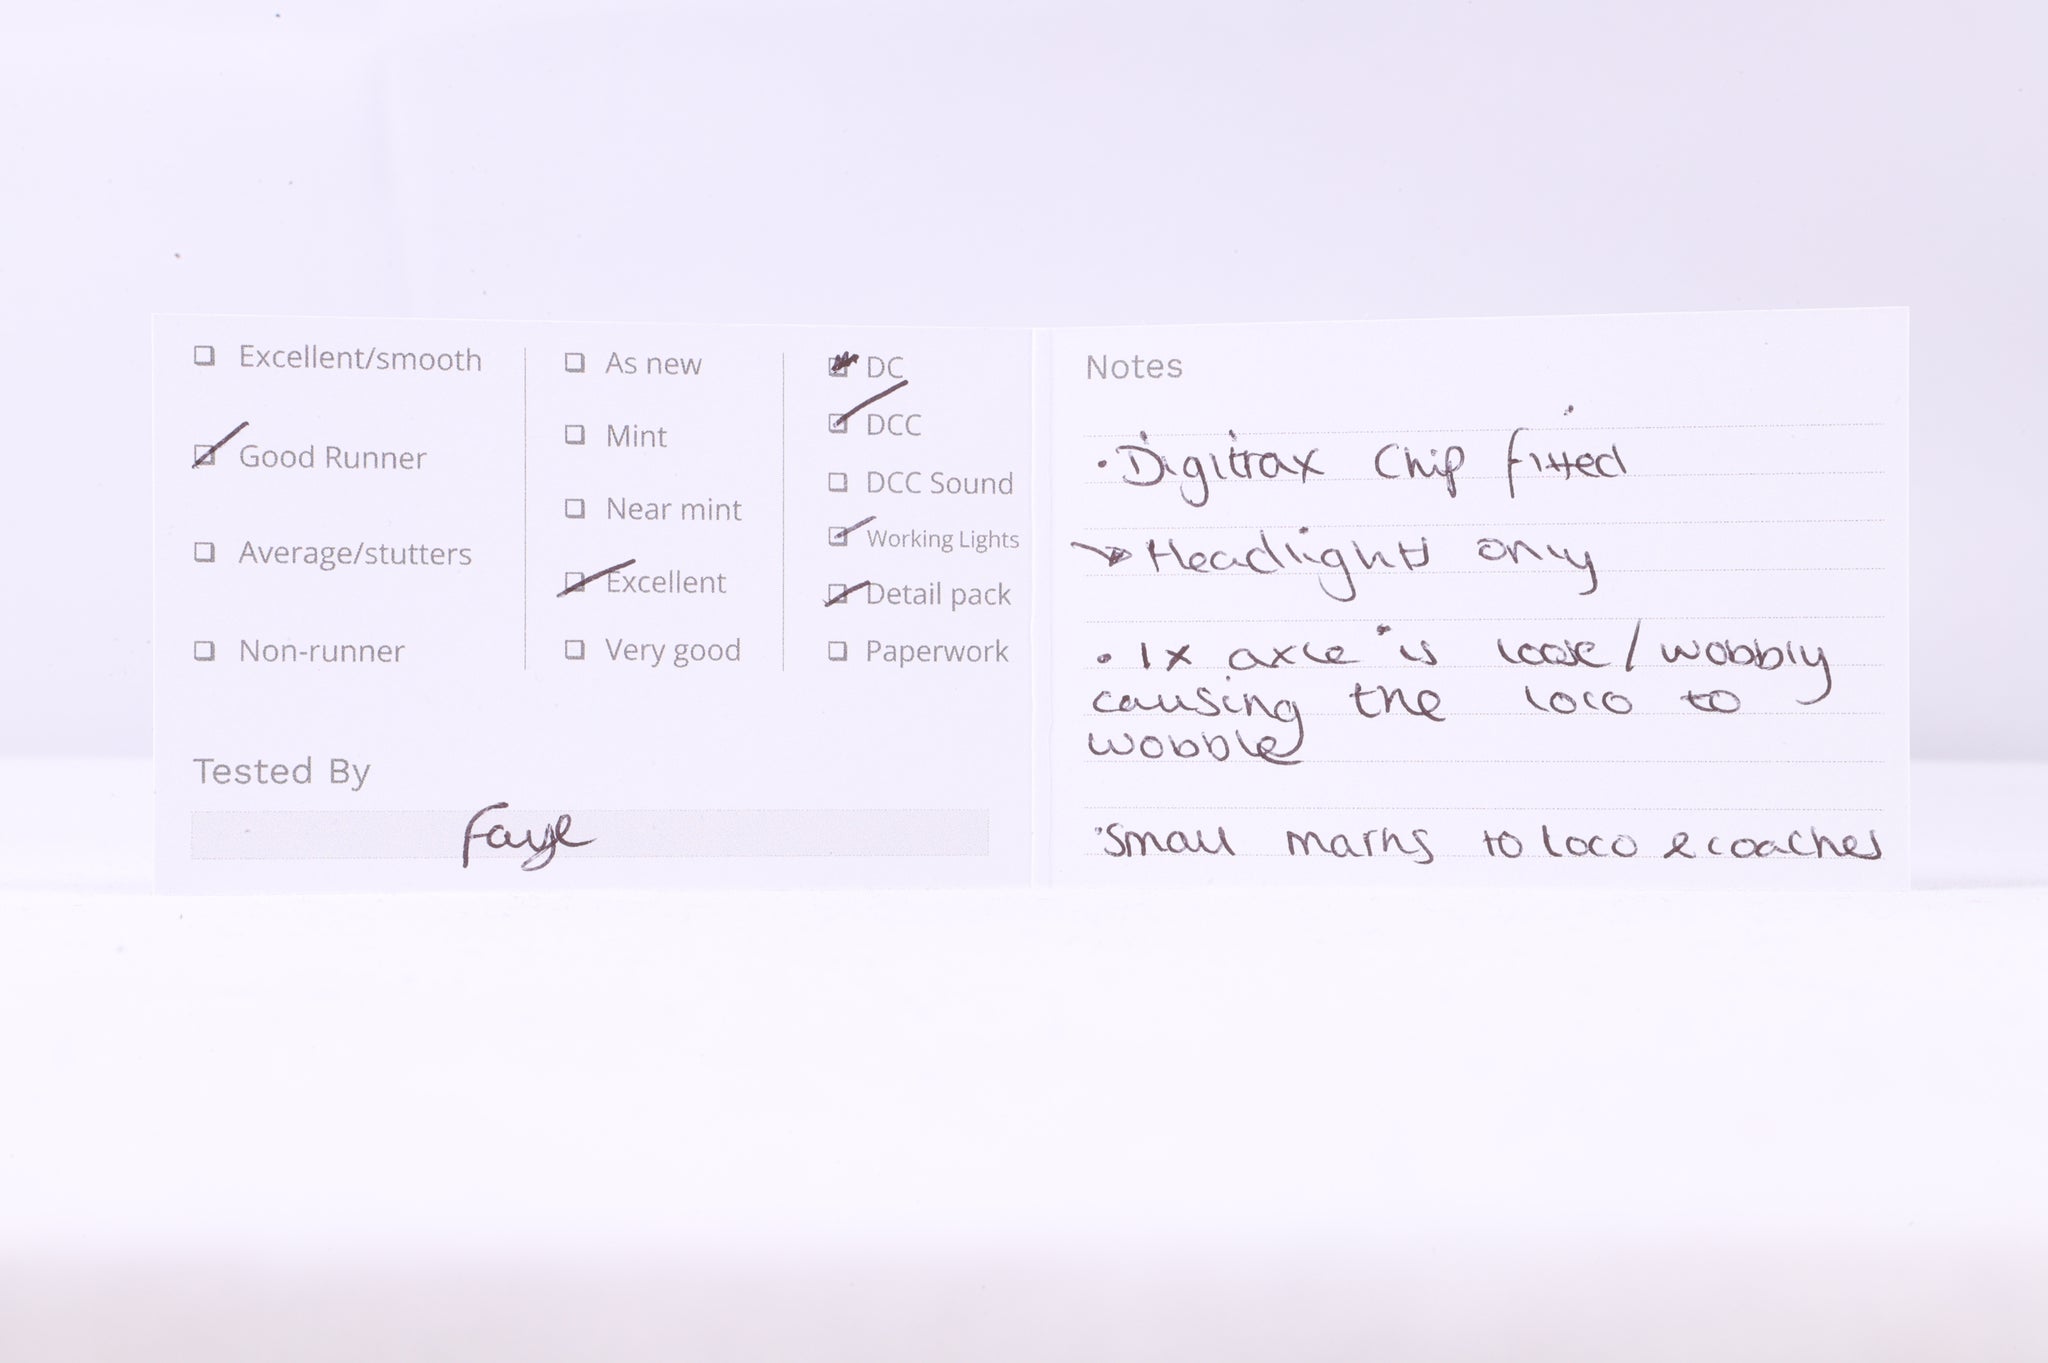 Excellent/smooth
Good Runner
Average/stutters
Non-runner
As new
Mint
Near mint
Excellent
Very good
DC
DCC
DCC Sound
Working Lights
Detail pack
Paperwork
Tested By
Faye
Notes
· Digitrax Chip fitted
→ Headlights only
· 1x axle is loose / wobbly
causing the loco to
wobble
· Small marks to loco & coaches